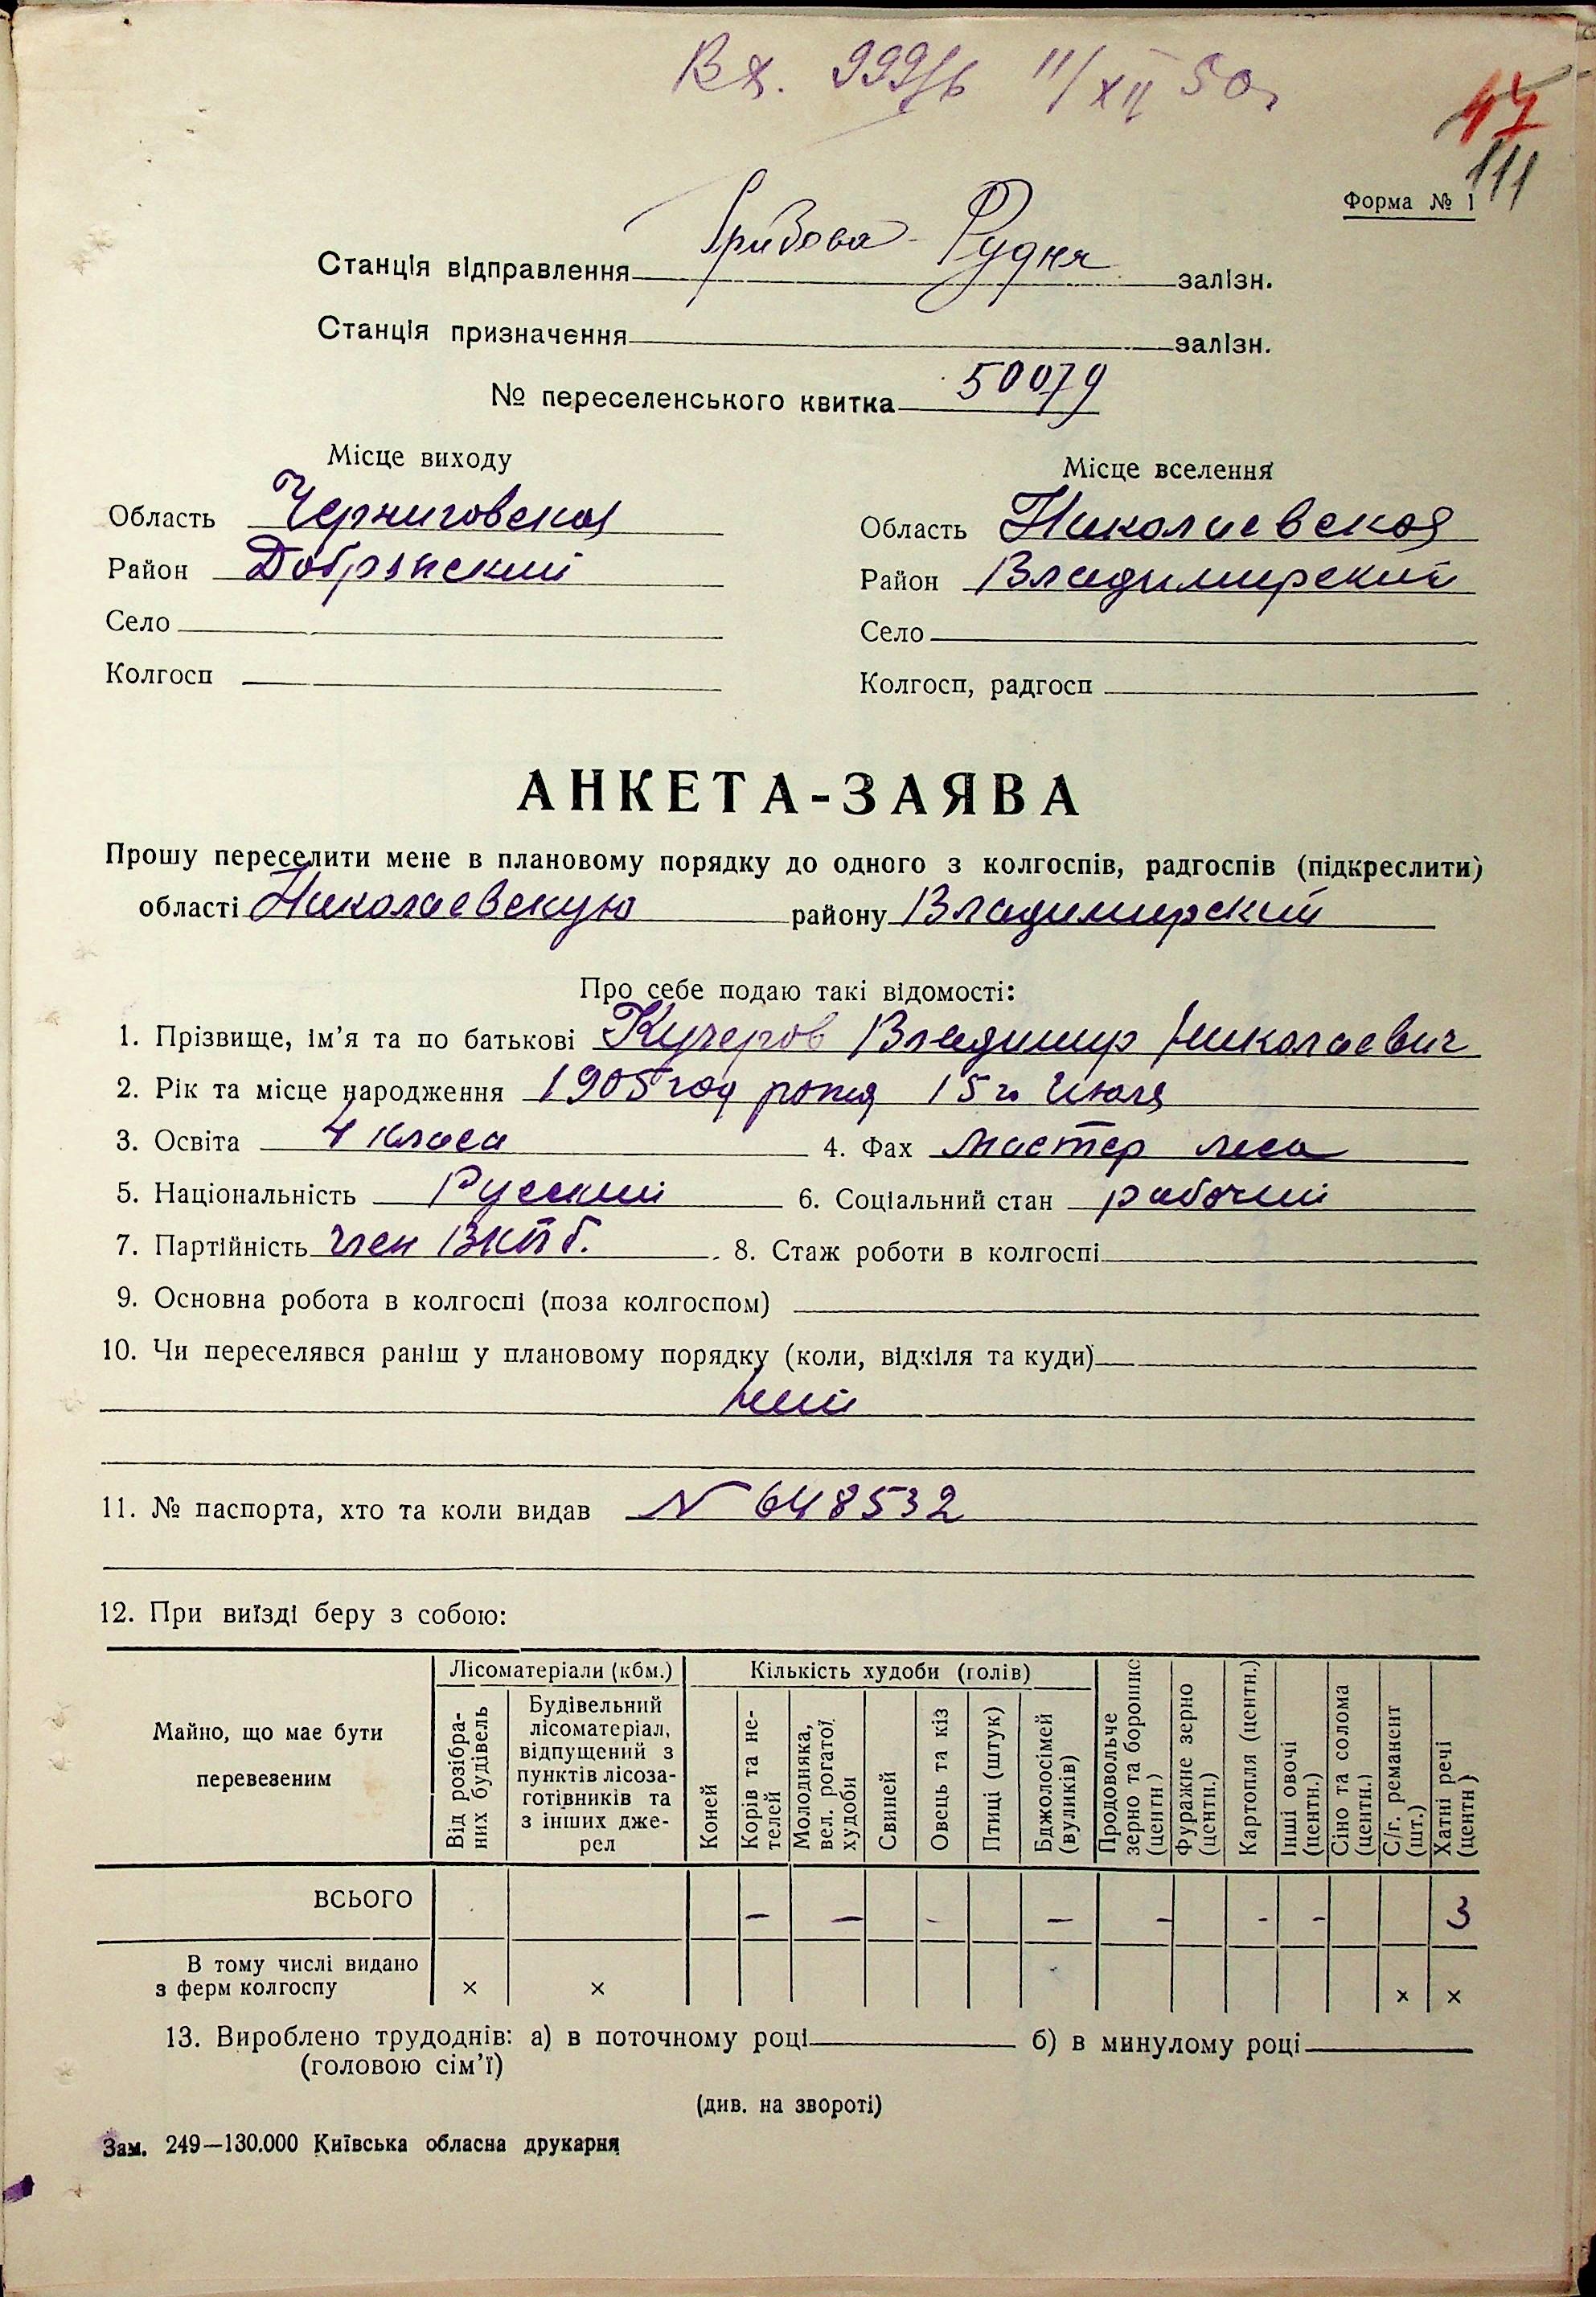 Вх. 999/6 11/XII 50г
47
111
Форма № 1
Станція відправлення Грибова-Рудня залізн.
Станція призначення залізн.
№ переселенського квитка 50079
Місце виходу
Область Черниговская
Район Добрянский
Село
Колгосп
Місце вселення
Область Николаевская
Район Владимирский
Село
Колгосп, радгосп
АНКЕТА-ЗАЯВА
Прошу переселити мене в плановому порядку до одного з колгоспів, радгоспів (підкреслити)
області Николаевскую району Владимирский
Про себе подаю такі відомості:
1. Прізвище, ім'я та по батькові Кучеров Владимир Николаевич
2. Рік та місце народження 1905 год рожд 15го Июля
3. Освіта 4 класа 4. Фах мастер леса
5. Національність Русский 6. Соціальний стан рабочий
7. Партійність член ВКПб. 8. Стаж роботи в колгоспі
9. Основна робота в колгоспі (поза колгоспом)
10. Чи переселявся раніш у плановому порядку (коли, відкіля та куди)
11. № паспорта, хто та коли видав N 648532
12. При виїзді беру з собою:
Майно, що має бути перевезеним
Лісоматеріали (кбм.)
Від розібраних будівель
Будівельний лісоматеріал, відпущений з пунктів лісозаготівників та з інших джерел
Кількість худоби (голів)
Коней
Корів та нетелей
Молодняка, вел. рогатої худоби
Свиней
Овець та кіз
Птиці (штук)
Бджолосімей (вуликів)
Продовольче зерно та борошно (центн)
Фуражне зерно (центн.)
Картопля (центн.)
Інші овочі (центн.)
Сіно та солома (центн.)
С/г. реманент (шт.)
Хатні речі (центн)
ВСЬОГО – – - – - - - 3
В тому числі видано
з ферм колгоспу × × × ×
13. Вироблено трудоднів: а) в поточному році б) в минулому році
(головою сім'ї)
(див. на звороті)
Зам. 249—130.000 Київська обласна друкарня